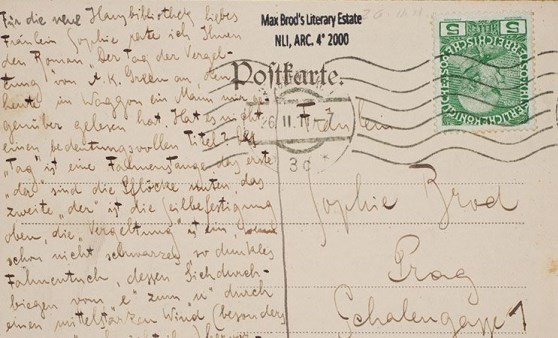 Für die neue Hausbibliothek liebes
Fräulein Sophie rate ich Ihnen
den Roman „Der Tag der Vergel-
tung" von A. K. Green an, den
heute im Waggon ein Mann mir ge-
genüber gelesen hat. Hat es nicht
einen bedeutungsvollen Titel? Der
„Tag" ist eine Fahnenstange, das erste
„der" sind die Pflöcke unten, das
zweite „der" ist die Seilbefestigung
oben, die „Vergeltung" ist ein, wenn
schon nicht schwarzes, so dunkles
Fahnentuch, dessen Sichdurch-
biegen vom „e" zum „u" durch
einen mittelstarken Wind (besonders
Max Brod's Literary Estate
NLI, ARC. 4° 2000
Postkarte.
5 5
Fräulein
Sophie Brod
Prag
Schalengasse 1